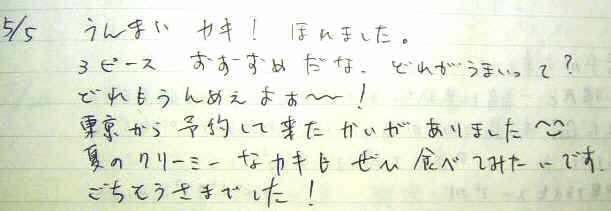 5/5 うんまいカキ! ほれました。
3ピース おすすめだな. どれがうまいって?
どれもうんめえよぉ〜!
東京から予約して来たかいがありました
夏のクリーミーなカキもぜひ食べてみたいです.
ごちそうさまでした!